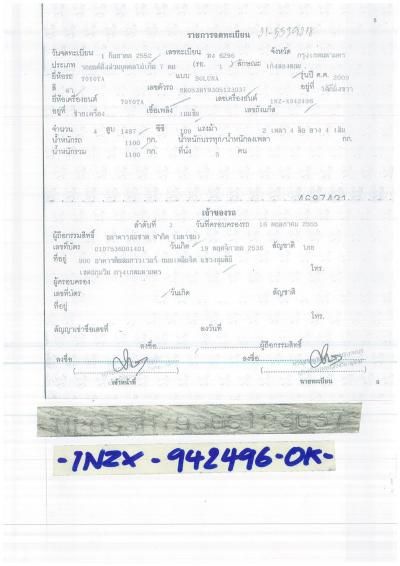 รายการจดทะเบียน
วันจดทะเบียน 1 กันยายน 2552 เลขทะเบียน 6296 จังหวัด กรุงเทพมหานคร
ประเภท รถยนต์นั่งส่วนบุคคลไม่เกิน 7 คน (รย. 1 ) ลักษณะ เก๋งสองตอน
ยี่ห้อรถ TOYOTA แบบ SOLUNA รุ่นปี ค.ศ. 2009
สี เลขตัวรถ อยู่ที่
ยี่ห้อเครื่องยนต์ TOYOTA เลขเครื่องยนต์ 1NZ-X942496
อยู่ที่ เชื้อเพลิง เบนซิน เลขถังแก๊ส
จำนวน 4 สูบ 1497 ซีซี 109 แรงม้า 2 เพลา 4 ล้อ ยาง 4 เส้น
น้ำหนักรถ 1100 กก. น้ำหนักบรรทุก/น้ำหนักลงเพลา กก.
น้ำหนักรวม 1100 กก. ที่นั่ง 5 คน
4687431
เจ้าของรถ
ลำดับที่ 2 วันที่ครอบครองรถ 16 พฤษภาคม 2555
ผู้ถือกรรมสิทธิ์ ธนาคารธนชาต จำกัด (มหาชน)
เลขที่บัตร 0107536001401 วันเกิด 19 พฤศจิกายน 2536 สัญชาติ ไทย
ที่อยู่ 900 อาคารต้นสนทาวเวอร์ ถนนเพลินจิต แขวงลุมพินี
เขตปทุมวัน กรุงเทพมหานคร โทร.
ผู้ครอบครอง
เลขที่บัตร วันเกิด สัญชาติ
ที่อยู่
โทร.
สัญญาเช่าซื้อเลขที่ ลงวันที่
ลงชื่อ ผู้ถือกรรมสิทธิ์
ลงชื่อ ลงชื่อ
เจ้าหน้าที่ นายทะเบียน
-1NZX-942496-OK-